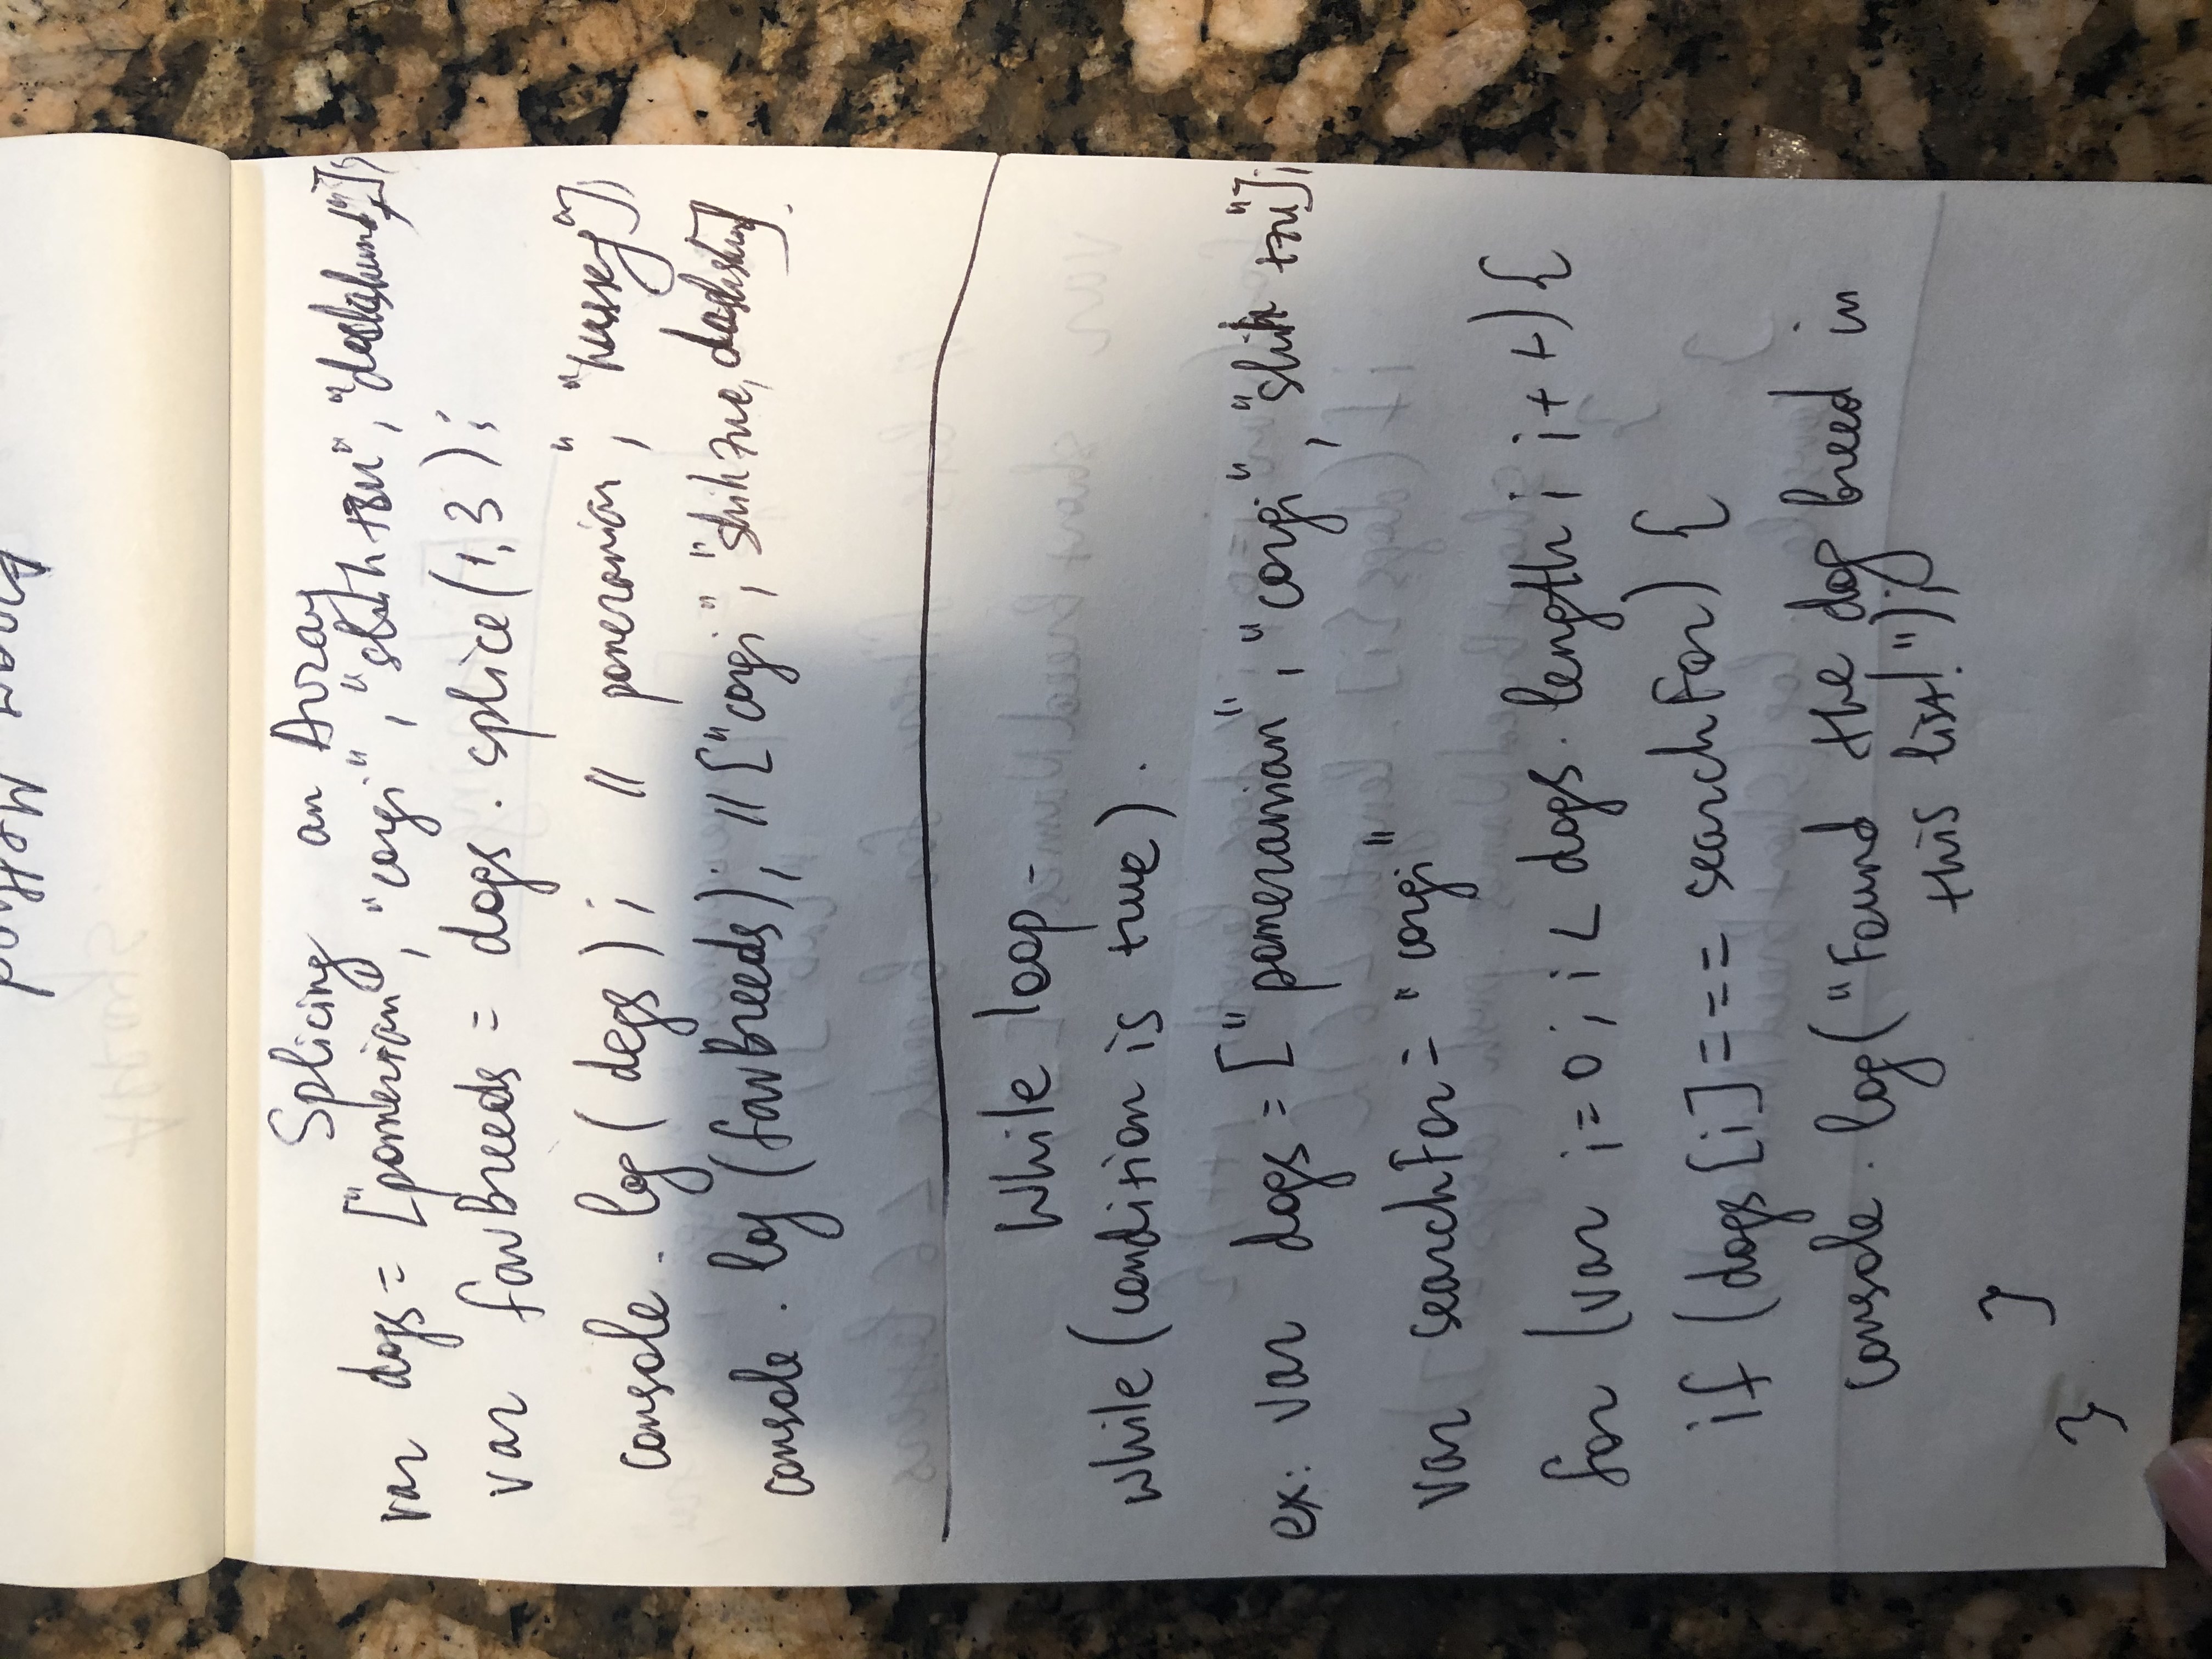 Array Method
Splicing an Array
var dogs = ["pomerian", "corgi", "shih tzu", "dachshund",])
var favBreeds = dogs . splice(1,3);
console . log( dogs ); // pomeranian", "hussey"])
console . log (favBreeds); // ["corgi", "shih zue, dashshund].
While loop -
while (condition is true).
ex: var dogs = ["pomeranian", "corgi", "shih tzu"];
var searchFor = "corgi"
for (var i=0; i < dogs. length; i++) {
if (dogs [i] === searchFor) {
console . log("Found the dog breed in
this list!");
}
}